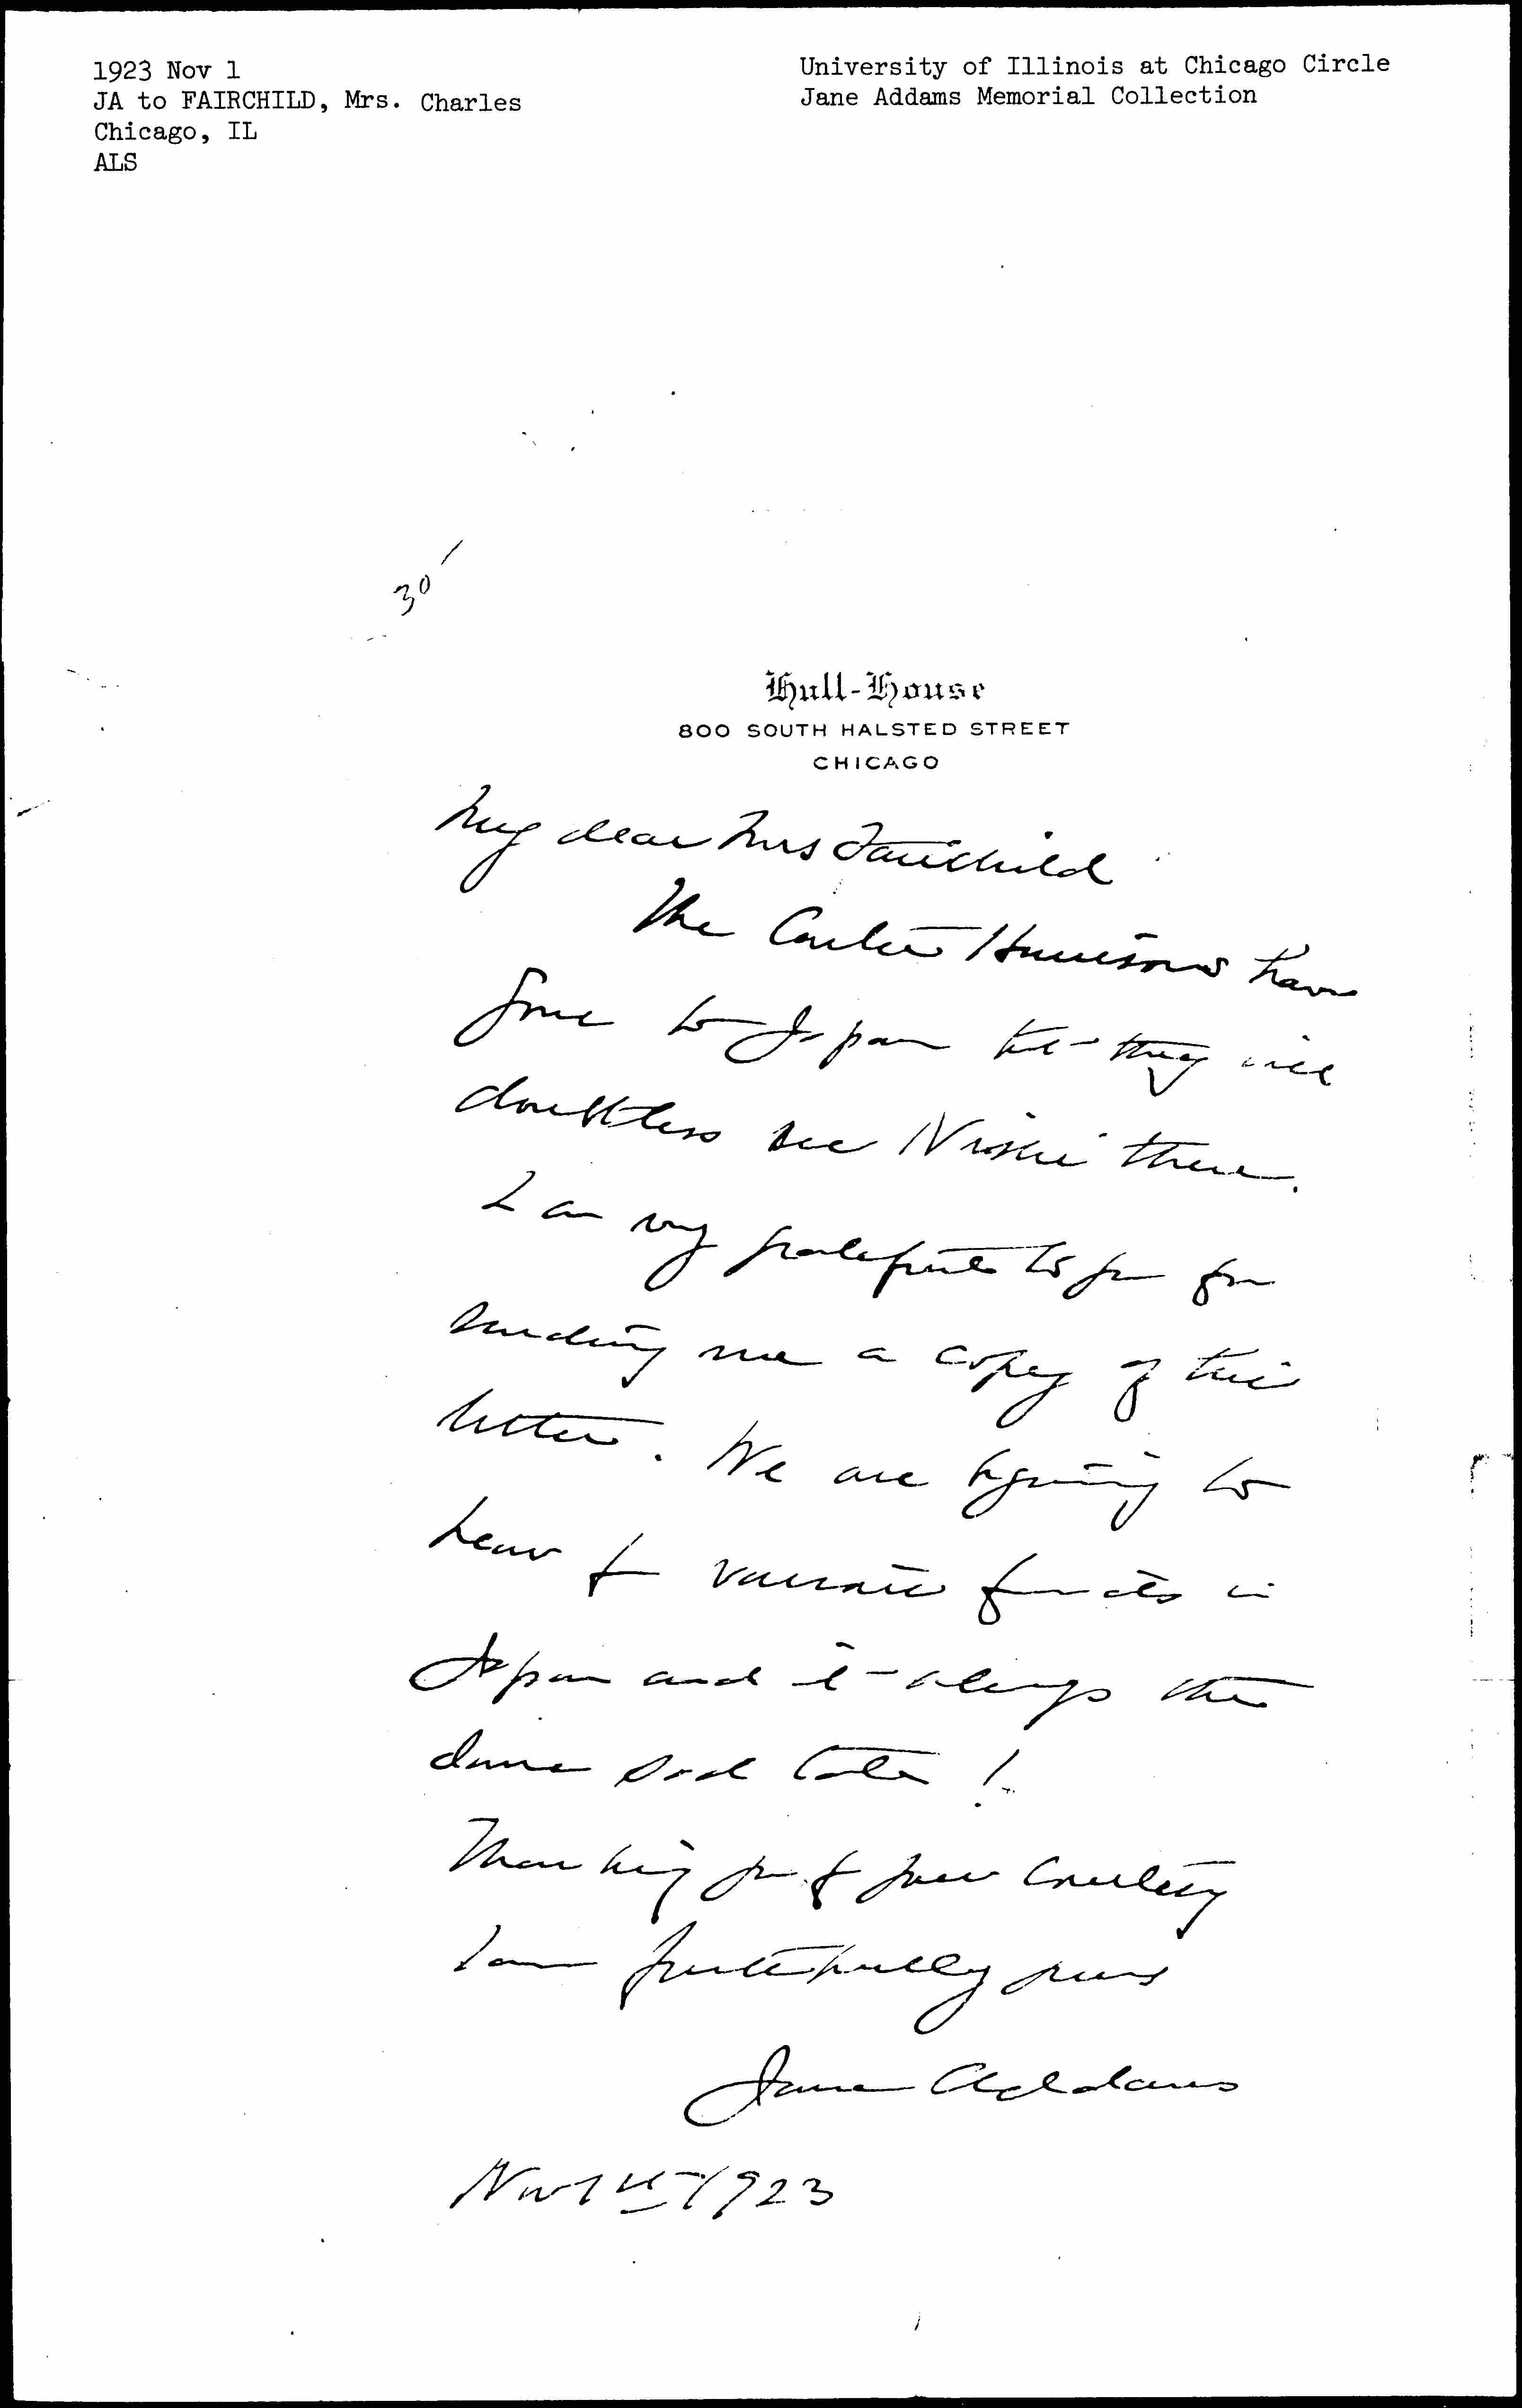 1923 Nov 1
JA to FAIRCHILD, Mrs. Charles
Chicago, IL
ALS
University of Illinois at Chicago Circle
Jane Addams Memorial Collection
30
Hull-House
800 SOUTH HALSTED STREET
CHICAGO
My dear Mrs Fairchild
The Carter Harrisons have
gone to Japan &
they will
doubtless see there.
I am very grateful to you for
sending me a copy of this
letter. We are beginning to
hear from various friends in
Japan and it is always the
same sad tale!
Thanking you for your courtesy
I am faithfully yours
Jane Addams
Nov 1st 1923